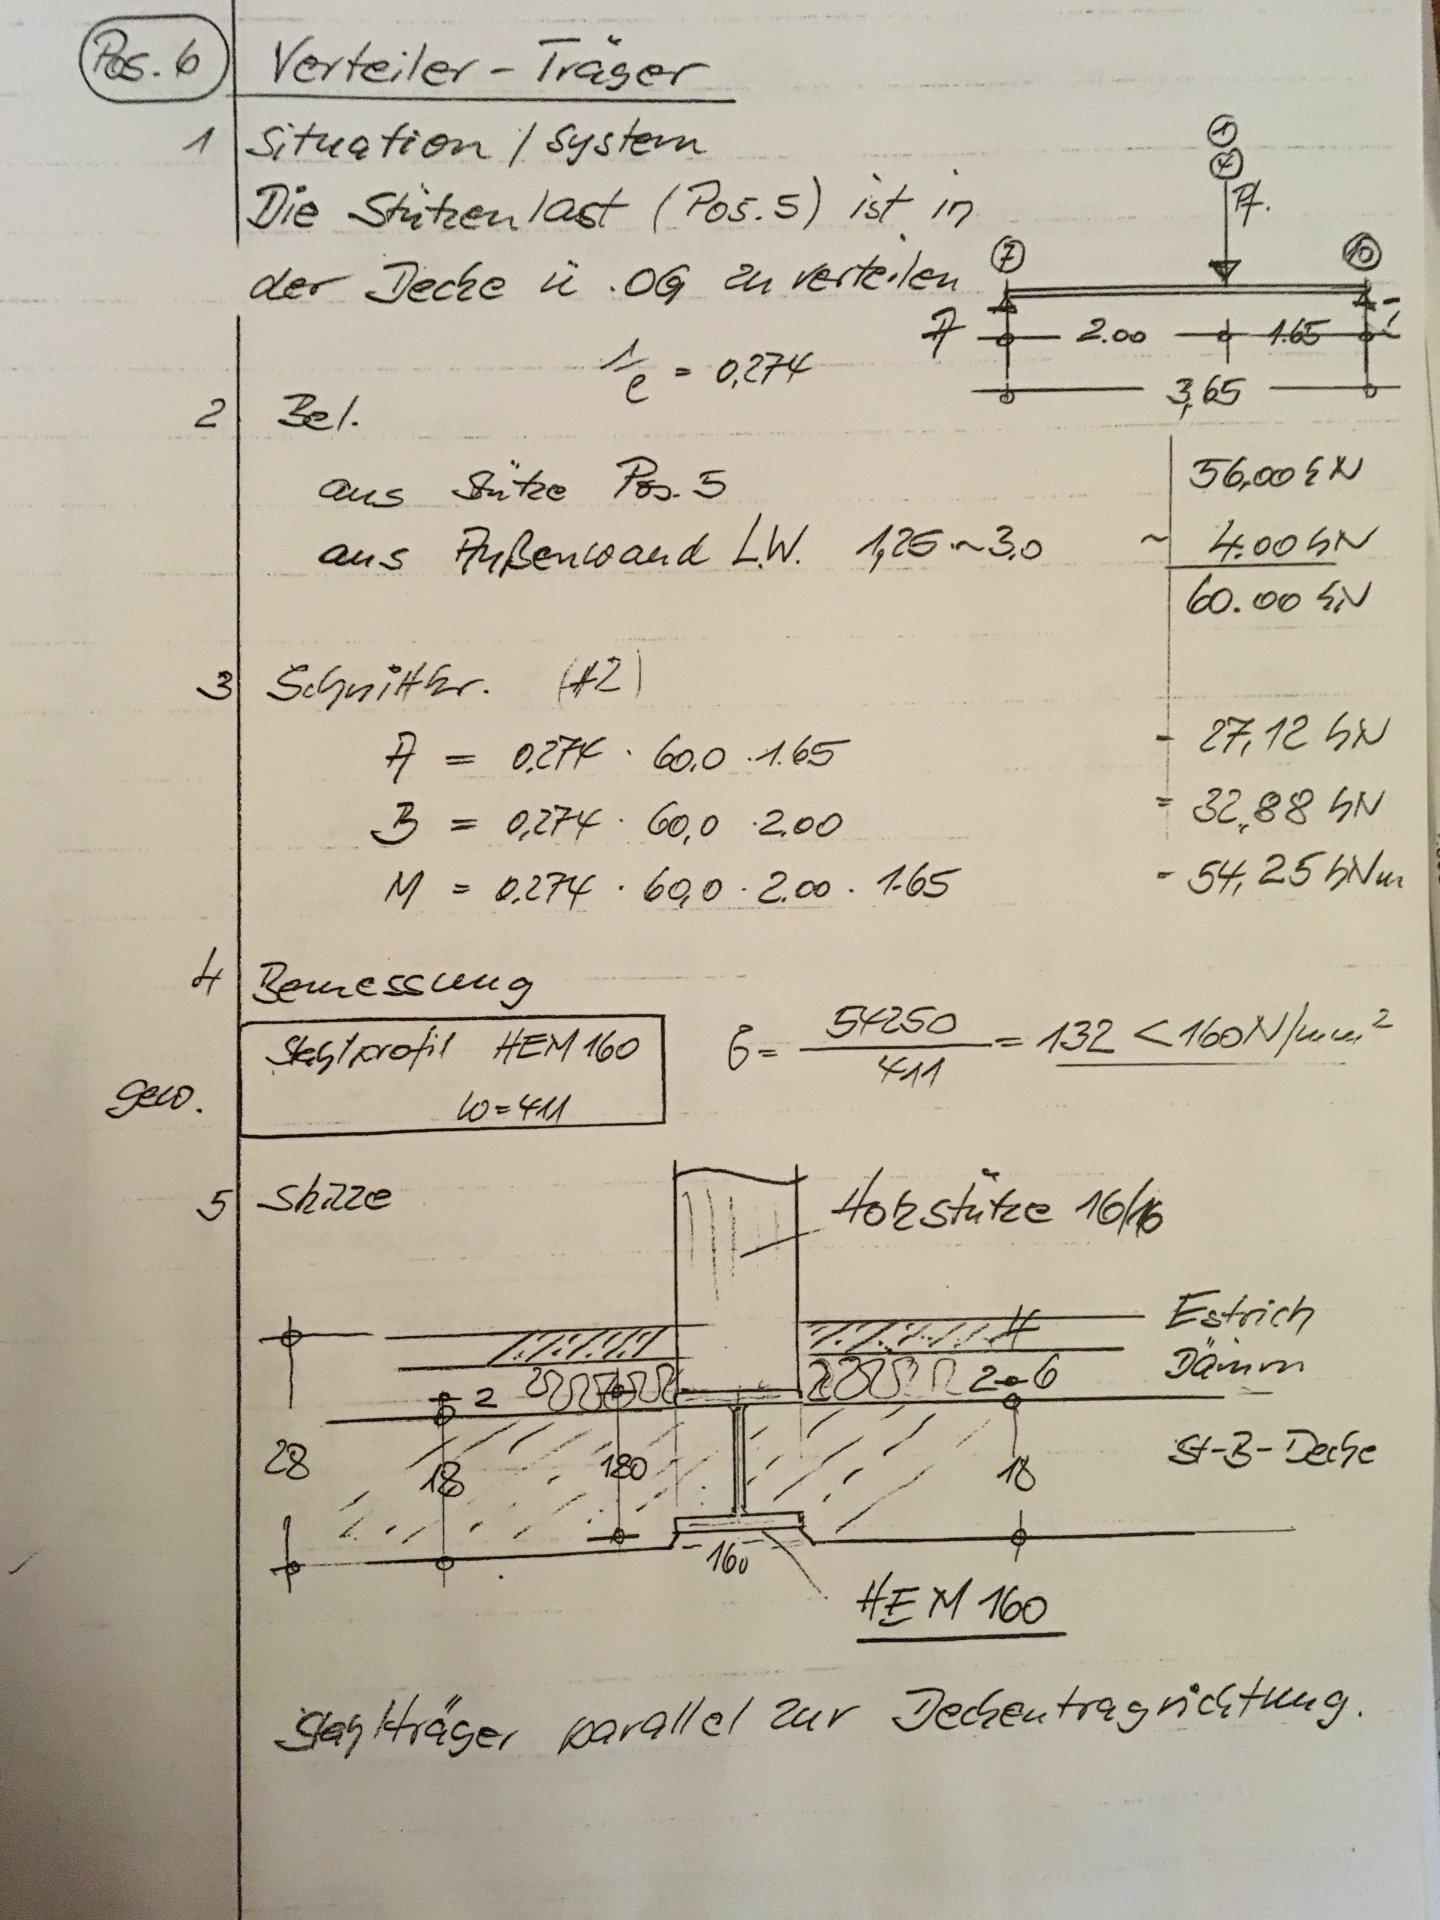 Pos. 6 Verteiler-Träger
1 Situation / System
Die Stützenlast (Pos. 5) ist in
der Decke ü. OG zu verteilen
1/l = 0,274
1
4
P.
7 10
A
2.00 1.65
3,65
2 Bel.
aus Stütze Pos. 5 56,00 kN
aus Außenwand L.W. 1,25 ~ 3,0 ~ 4.00 kN
60.00 kN
3 Schnittkr. (H2)
A = 0,274 · 60,0 · 1.65 = 27,12 kN
B = 0,274 · 60,0 · 2.00 = 32,88 kN
M = 0.274 · 60,0 · 2.00 · 1.65 = 54,25 kNm
4 Bemessung
gew. Stahlprofil HEM 160
W=411
σ = 54250 / 411 = 132 < 160 N/mm²
5 Skizze
Holzstütze 16/16
Estrich
4
Dämm
2 2 6
28 18 180 18 St-B-Decke
160
HEM 160
Stahlträger parallel zur Deckentragrichtung.